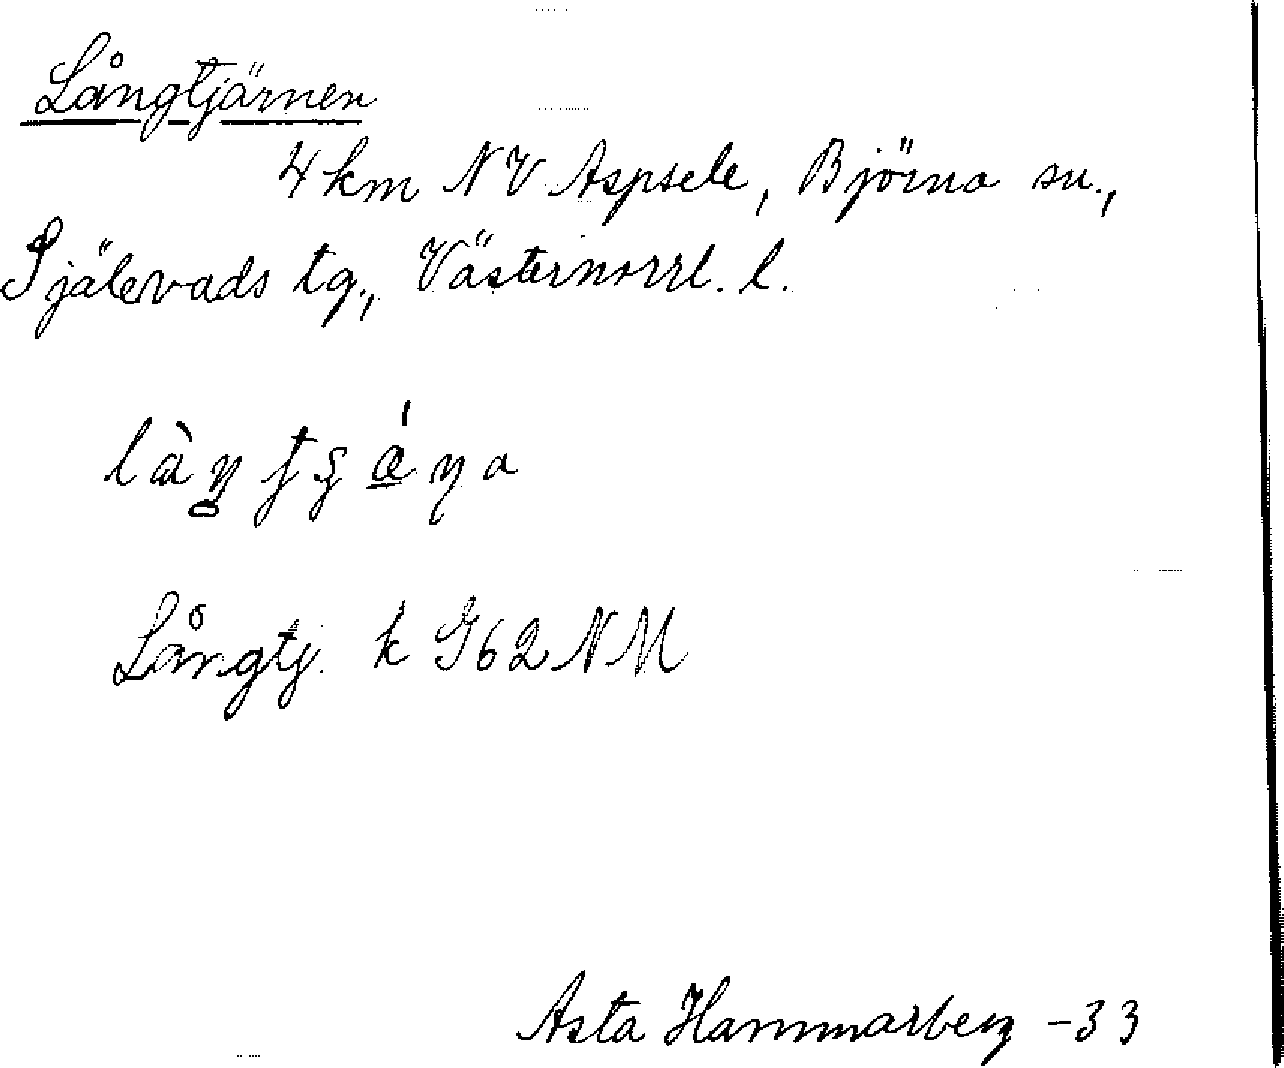 Långtjärnen
4 km NV Aspsele, Björna sn.,
Själevads tg., Västernorrl. l.
Långtj. k G62NM
Asta Hammarberg -33